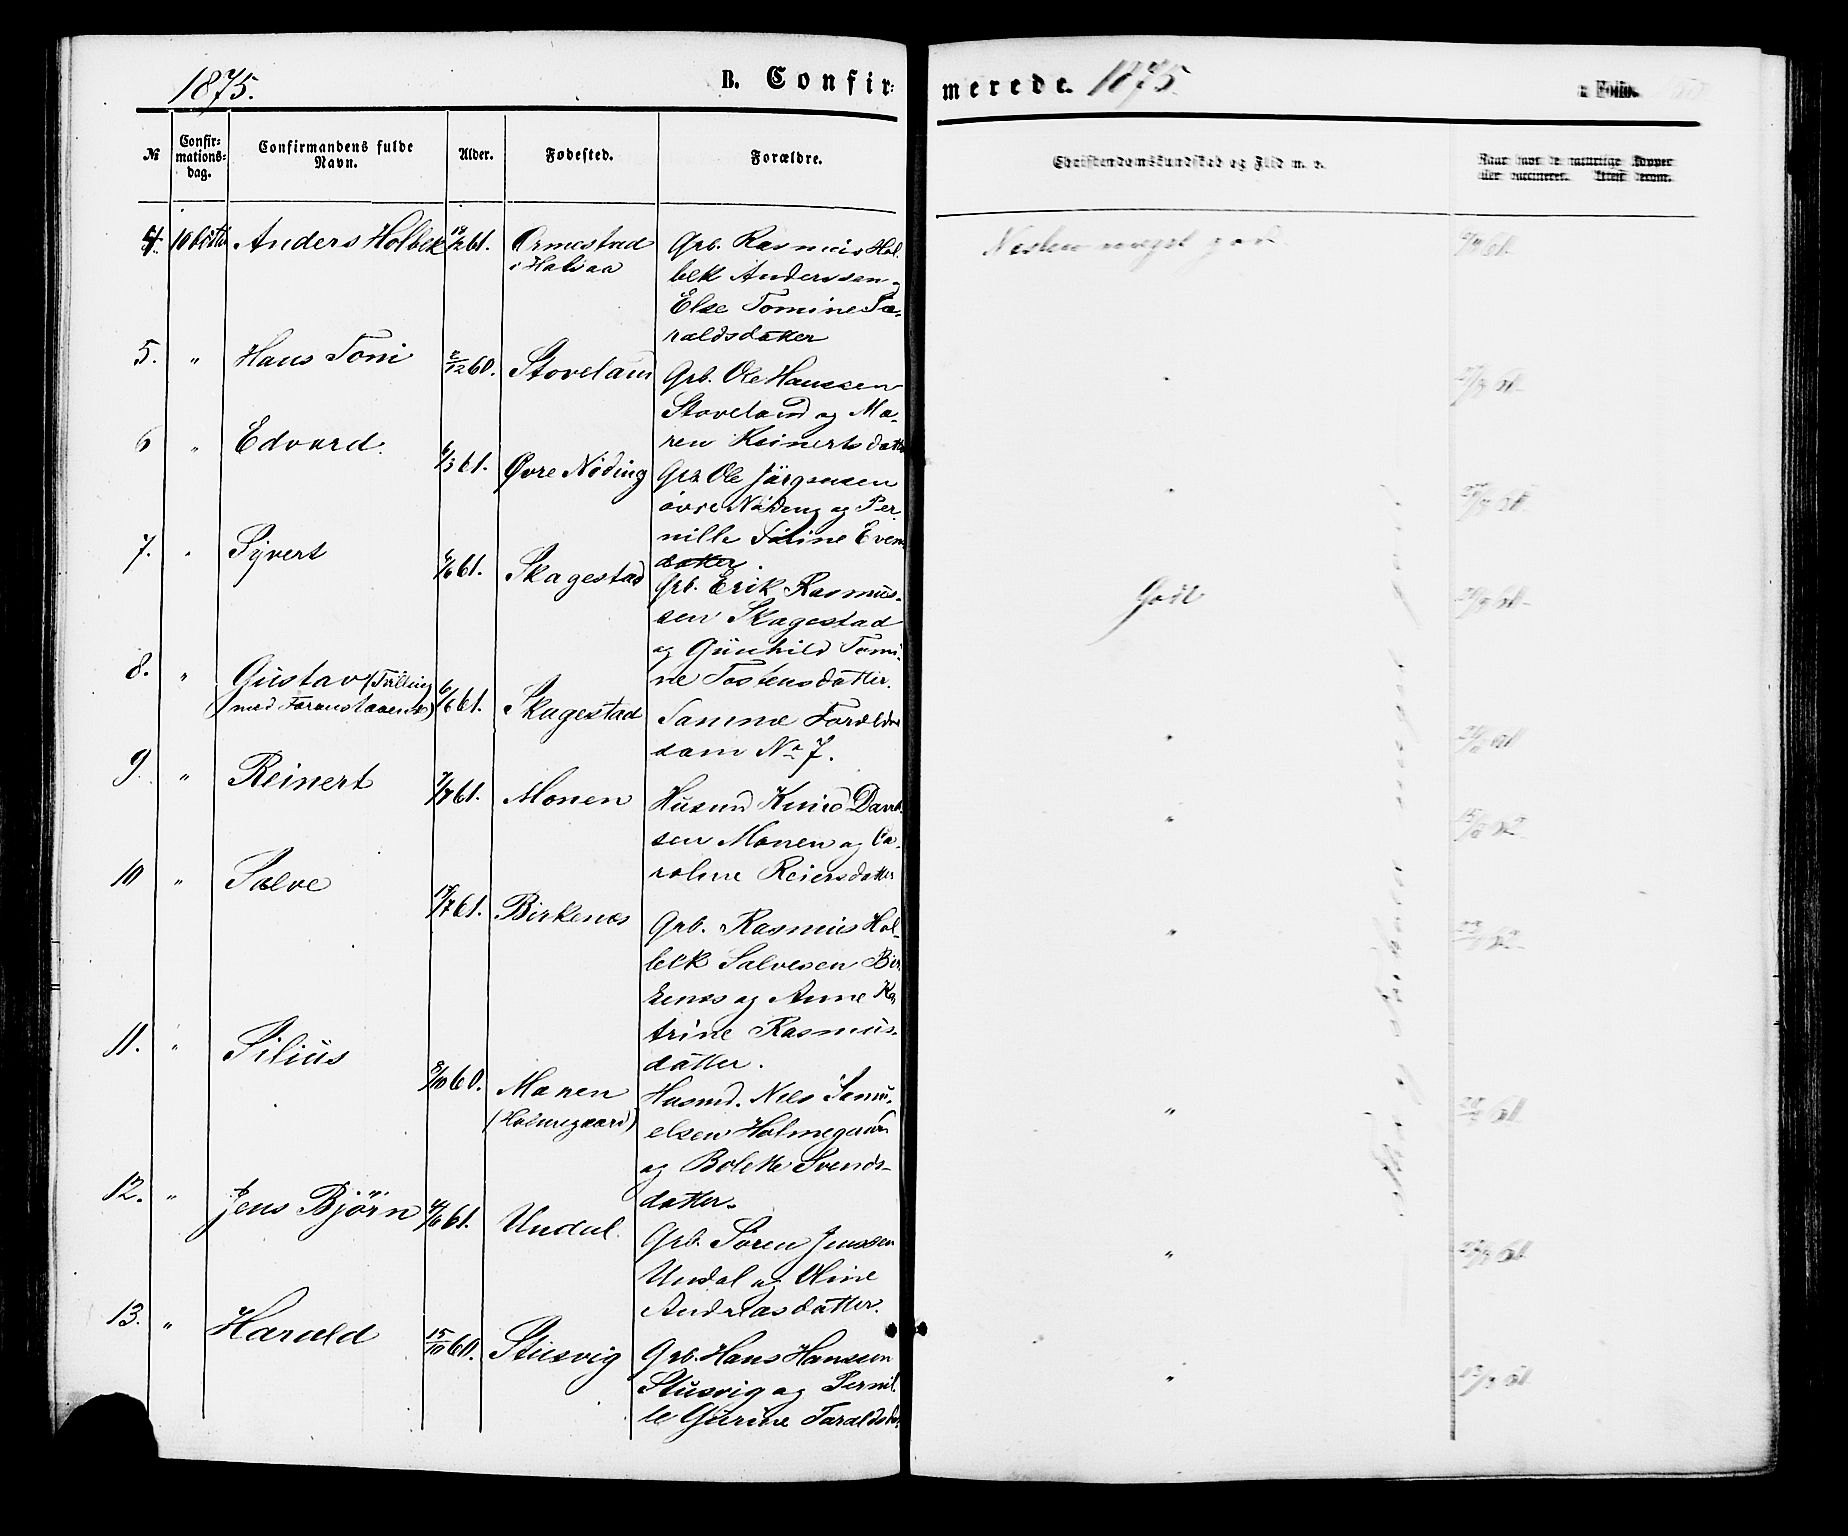 1875.
B. Confir-
merede. 1875.
Folio.
№
Confir-
mations-
dag.
Confirmandens fulde
Navn.
Alder.
Fødested.
Forældre.
Christendomskundskab og Flid m. v.
Naar havt de naturlige Kopper
eller vaccineret. Attest derom.
4. Anders Holbek 61. Ormestad
i Halsaa
Grb. Rasmus Hol-
bek Anderssen og
Else Tomine Ta-
raldsdatter
Næsten meget godt
5. " Hans Toni 2/12 60. Stoveland
Grb. Ole Hanssen
Stoveland og Ma-
ren Reinertsdatter
6 " Edvard. 61. Øvre Nöding
Grb. Ole Jörgensen
övre Nöding og Per-
nille Evens-
datter.
7. " Syvert 61. Skagestad
Grb. Erik Rasmus-
sen Skagestad
og Gunhild Tomi-
ne Tostensdatter.
Godt
8. " Gustav (Tvilling
med Foranstaaende) 61. Skagestad
Samme Forældre
som No 7.
"
9. " Reinert 61. Monen
Husmd Knud
sen Monen og Ca-
roline Reiersdatter
"
10 " Salve 61. Birkenes
Grb. Rasmus Hol-
bek Salvesen Bir-
kenes og Anne Ka-
trine Rasmus-
datter.
"
11. " Silius 60. Monen
(Holmegaard)
Husmd. Nils Samu-
elsen Holmegaard
og Bolette Svends-
datter.
"
12. " Jens Bjørn 61. Undal.
Grb. Sören Jenssen
Undal og Oline
Andreasdatter.
"
13. " Harald 15/10 60. Stusvig
Grb. Hans Hanssen
Stusvig og Pernil-
le Gurine Taraldsd.
"